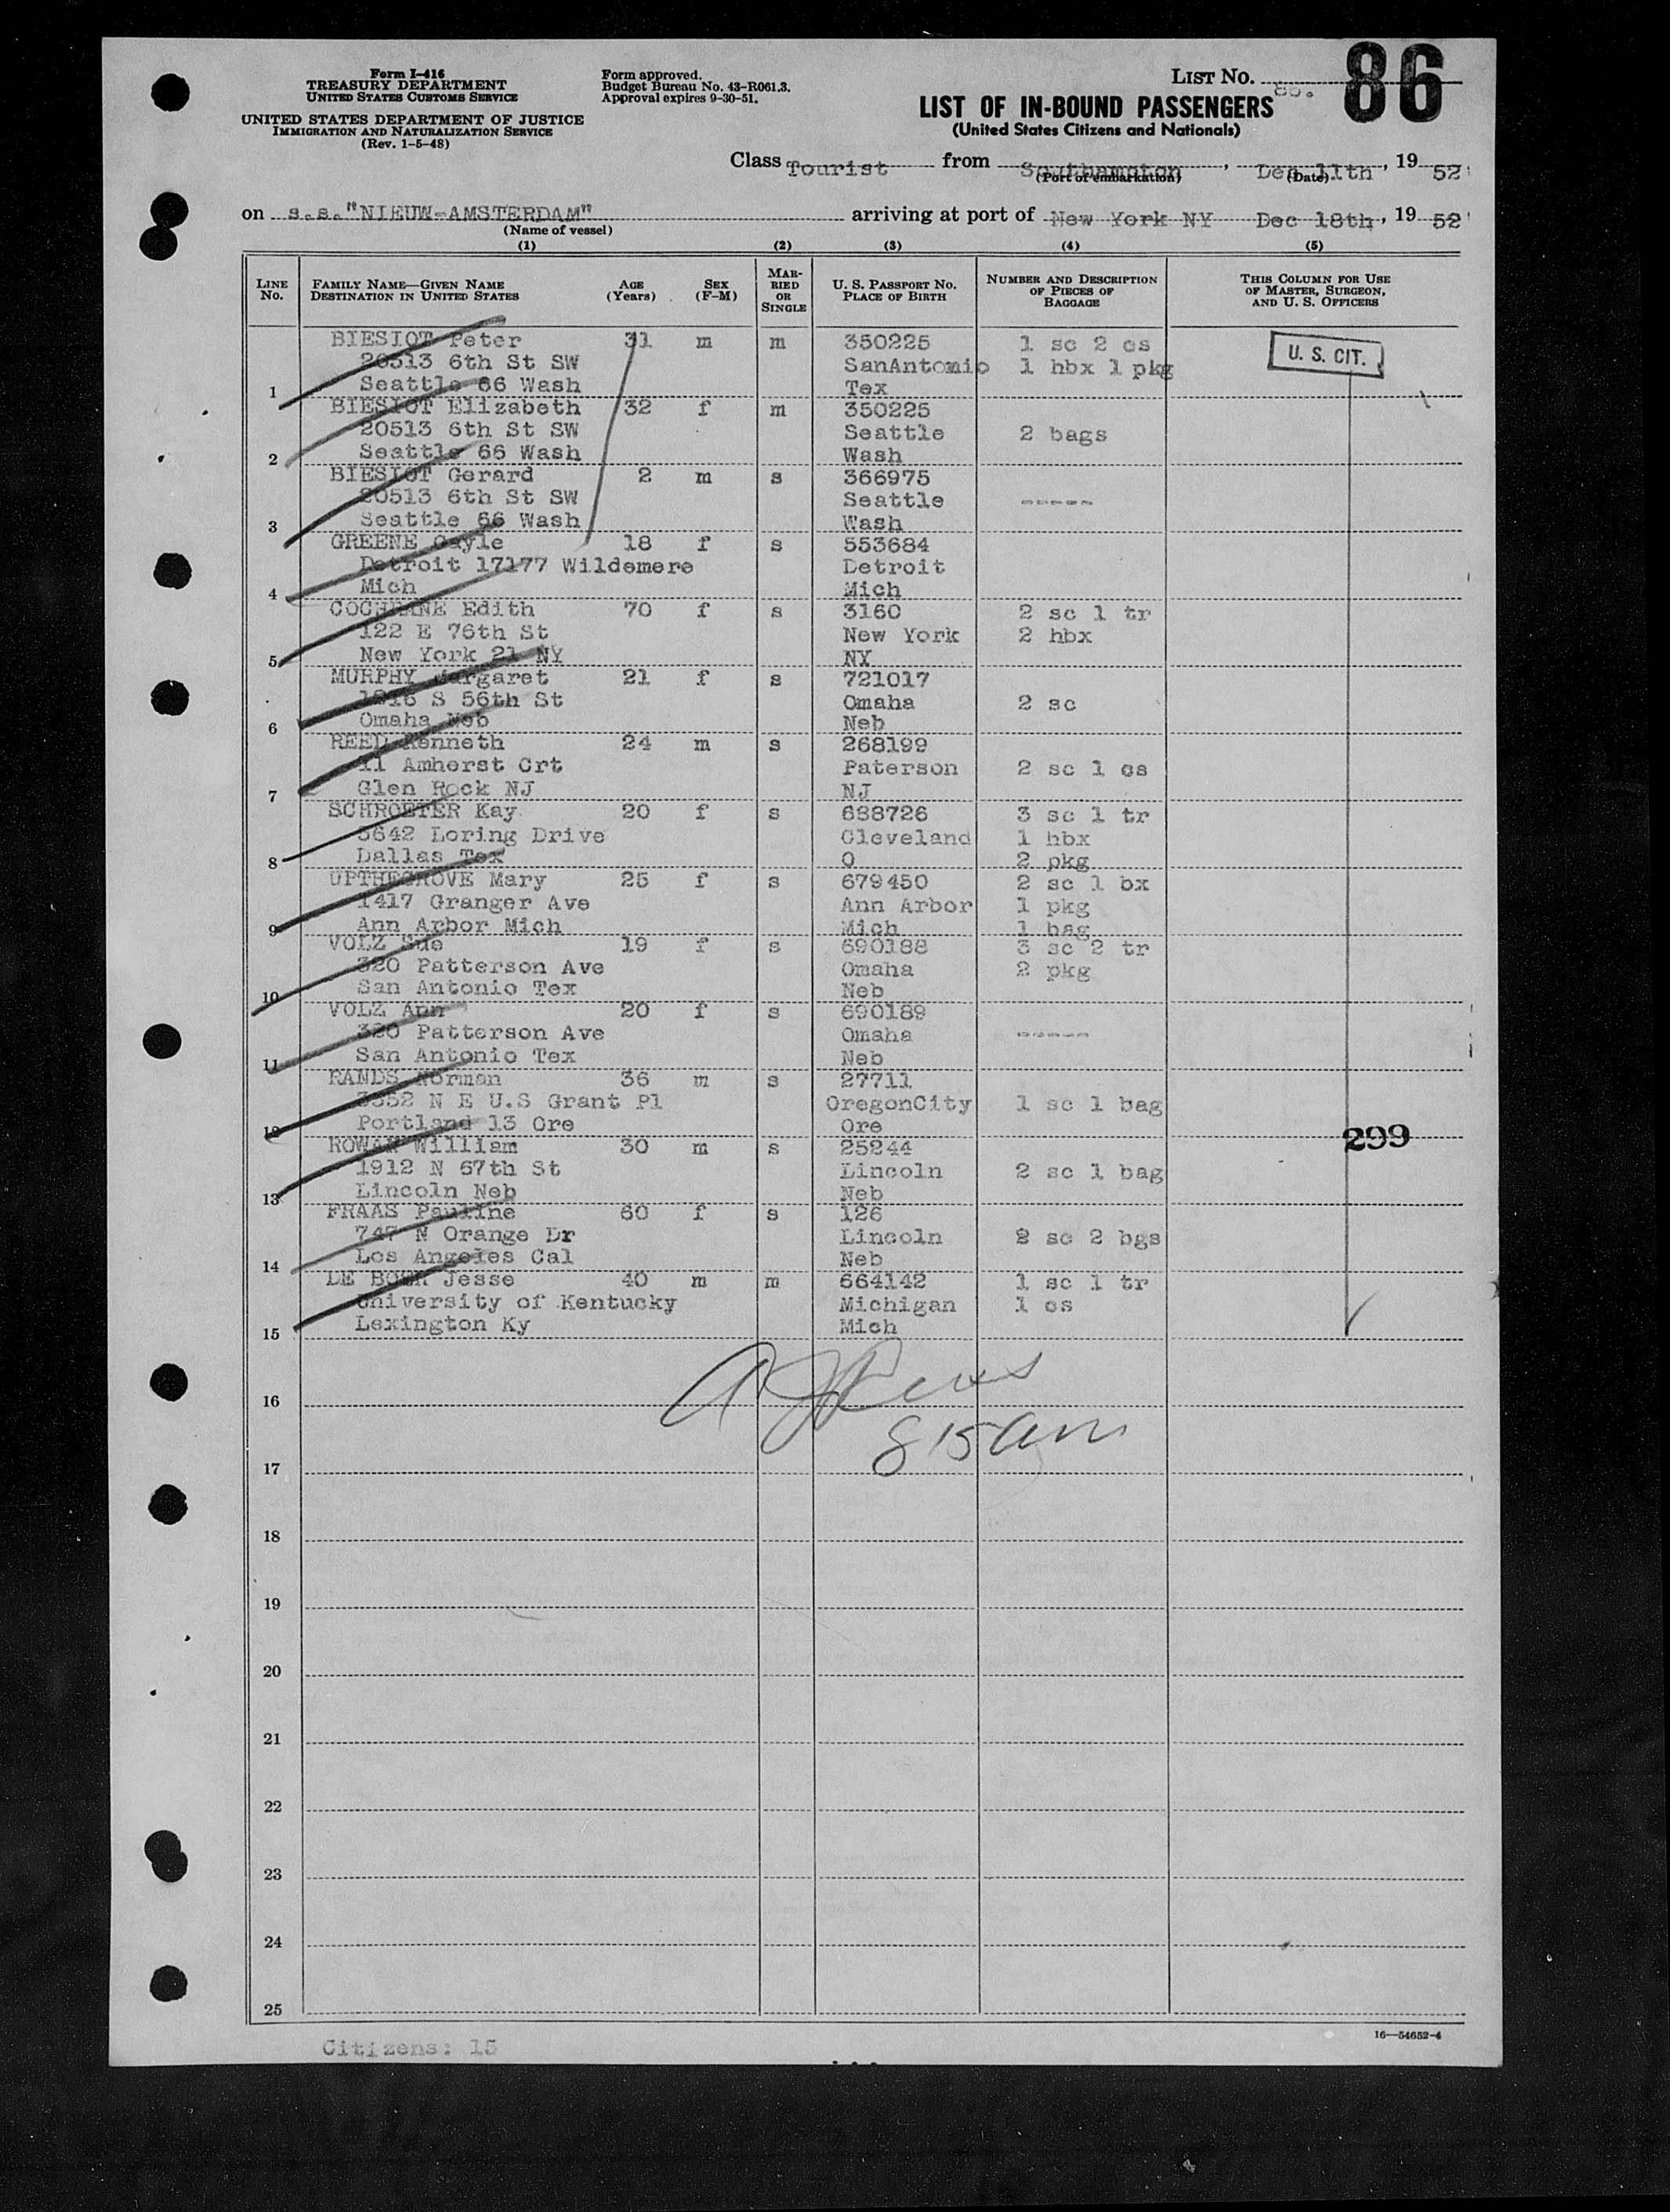 Form I-416
TREASURY DEPARTMENT
UNITED STATES CUSTOMS SERVICE
UNITED STATES DEPARTMENT OF JUSTICE
IMMIGRATION AND NATURALIZATION SERVICE
(Rev. 1-5-48)
Form approved.
Budget Bureau No. 43-R061.3.
Approval expires 9-30-51.
LIST NO. 86
LIST OF IN-BOUND PASSENGERS
(United States Citizens and Nationals)
Class Tourist from Southampton, Dec 11th, 19 52
(Port of embarkation) (Date)
on s.s."NIEUW-AMSTERDAM" arriving at port of New York NY Dec 18th, 19 52
(Name of vessel)
(1) (2) (3) (4) (5)
LINE NO.
FAMILY NAME—GIVEN NAME
DESTINATION IN UNITED STATES
AGE (Years)
SEX (F-M)
MARRIED OR SINGLE
U. S. PASSPORT NO.
PLACE OF BIRTH
NUMBER AND DESCRIPTION OF PIECES OF BAGGAGE
THIS COLUMN FOR USE OF MASTER, SURGEON, AND U. S. OFFICERS
BIESIOT Peter 31 m m 350225 1 sc 2 cs U. S. CIT.
20513 6th St SW SanAntonio 1 hbx 1 pkg
1 Seattle 66 Wash Tex
BIESIOT Elizabeth 32 f m 350225
20513 6th St SW Seattle 2 bags
2 Seattle 66 Wash Wash
BIESIOT Gerard 2 m s 366975
20513 6th St SW Seattle -----
3 Seattle 66 Wash Wash
GREENE Gayle 18 f s 553684
Detroit 17177 Wildemere Detroit
4 Mich Mich
COCHRANE Edith 70 f s 3160 2 sc 1 tr
122 E 76th St New York 2 hbx
5 New York 21 NY NY
MURPHY Margaret 21 f s 721017
1816 S 56th St Omaha 2 sc
6 Omaha Neb Neb
REED Kenneth 24 m s 268199
11 Amherst Crt Paterson 2 sc 1 cs
7 Glen Rock NJ NJ
SCHROETER Kay 20 f s 688726 3 sc 1 tr
3642 Loring Drive Cleveland 1 hbx
8 Dallas Tex O 2 pkg
UPTHEGROVE Mary 25 f s 679450 2 sc 1 bx
1417 Granger Ave Ann Arbor 1 pkg
9 Ann Arbor Mich Mich 1 bag
VOLZ Sue 19 f s 690188 3 sc 2 tr
320 Patterson Ave Omaha 2 pkg
10 San Antonio Tex Neb
VOLZ Ann 20 f s 690189
320 Patterson Ave Omaha -----
11 San Antonio Tex Neb
RANDS Norman 36 m s 27711
3352 N E U.S Grant Pl OregonCity 1 sc 1 bag
12 Portland 13 Ore Ore 299
ROWAN William 30 m s 25244
1912 N 67th St Lincoln 2 sc 1 bag
13 Lincoln Neb Neb
FRAAS Pauline 60 f s 126
747 N Orange Dr Lincoln 2 sc 2 bgs
14 Los Angeles Cal Neb
DE BOER Jesse 40 m m 664142 1 sc 1 tr
University of Kentucky Michigan 1 cs
15 Lexington Ky Mich
16
815 am
17
18
19
20
21
22
23
24
25
16—54652-4
Citizens: 15